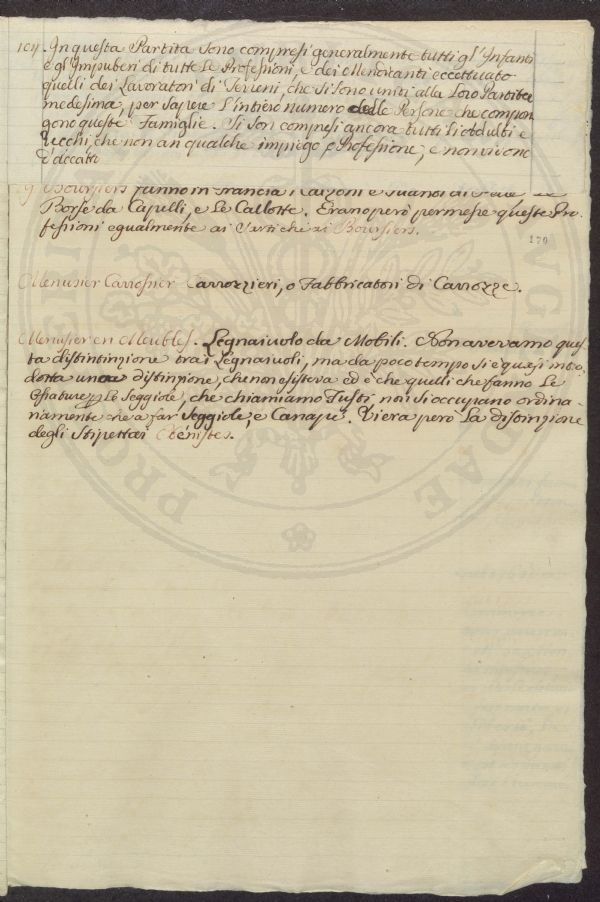 104. In questa Partita sono compresi generalmente tutti gl'Infanti
e gl'Impuberi di tutte le Professioni, e dei Mendicanti eccettuato
quelli dei Lavoratori di Terreni, che si sono uniti alla loro Partita
medesima, per sapere l'intiero numero delle Persone che compon
gono queste Famiglie. Si son compresi ancora tutti li Adulti e
Vecchi, che non an qualche impiego o Professione, e non vivono
d'accatti
Boursiers fanno in Francia i Calzoni e
Borse da Capelli, e le Callotte. Erano però permesse queste Pro-
fessioni egualmente ai Sarti che ai Boursiers.
170
Menusier Carrosier Carrozzieri, o Fabbricatori di Carrozze.
Menusier en Meubles. Legnaiuolo da Mobili. Non avevamo ques
ta distintinzione tra i Legnaiuoli, ma da poco tempo si è quasi intro
dotta una distinzione, che non esisteva ed è che quelli che fanno le
le Seggiole, che chiamiamo Fusti, non si occupano ordina-
riamente che a far Seggiole, e Canapè. Vi era però la distinzione
degli Stipettai Ebénistes.